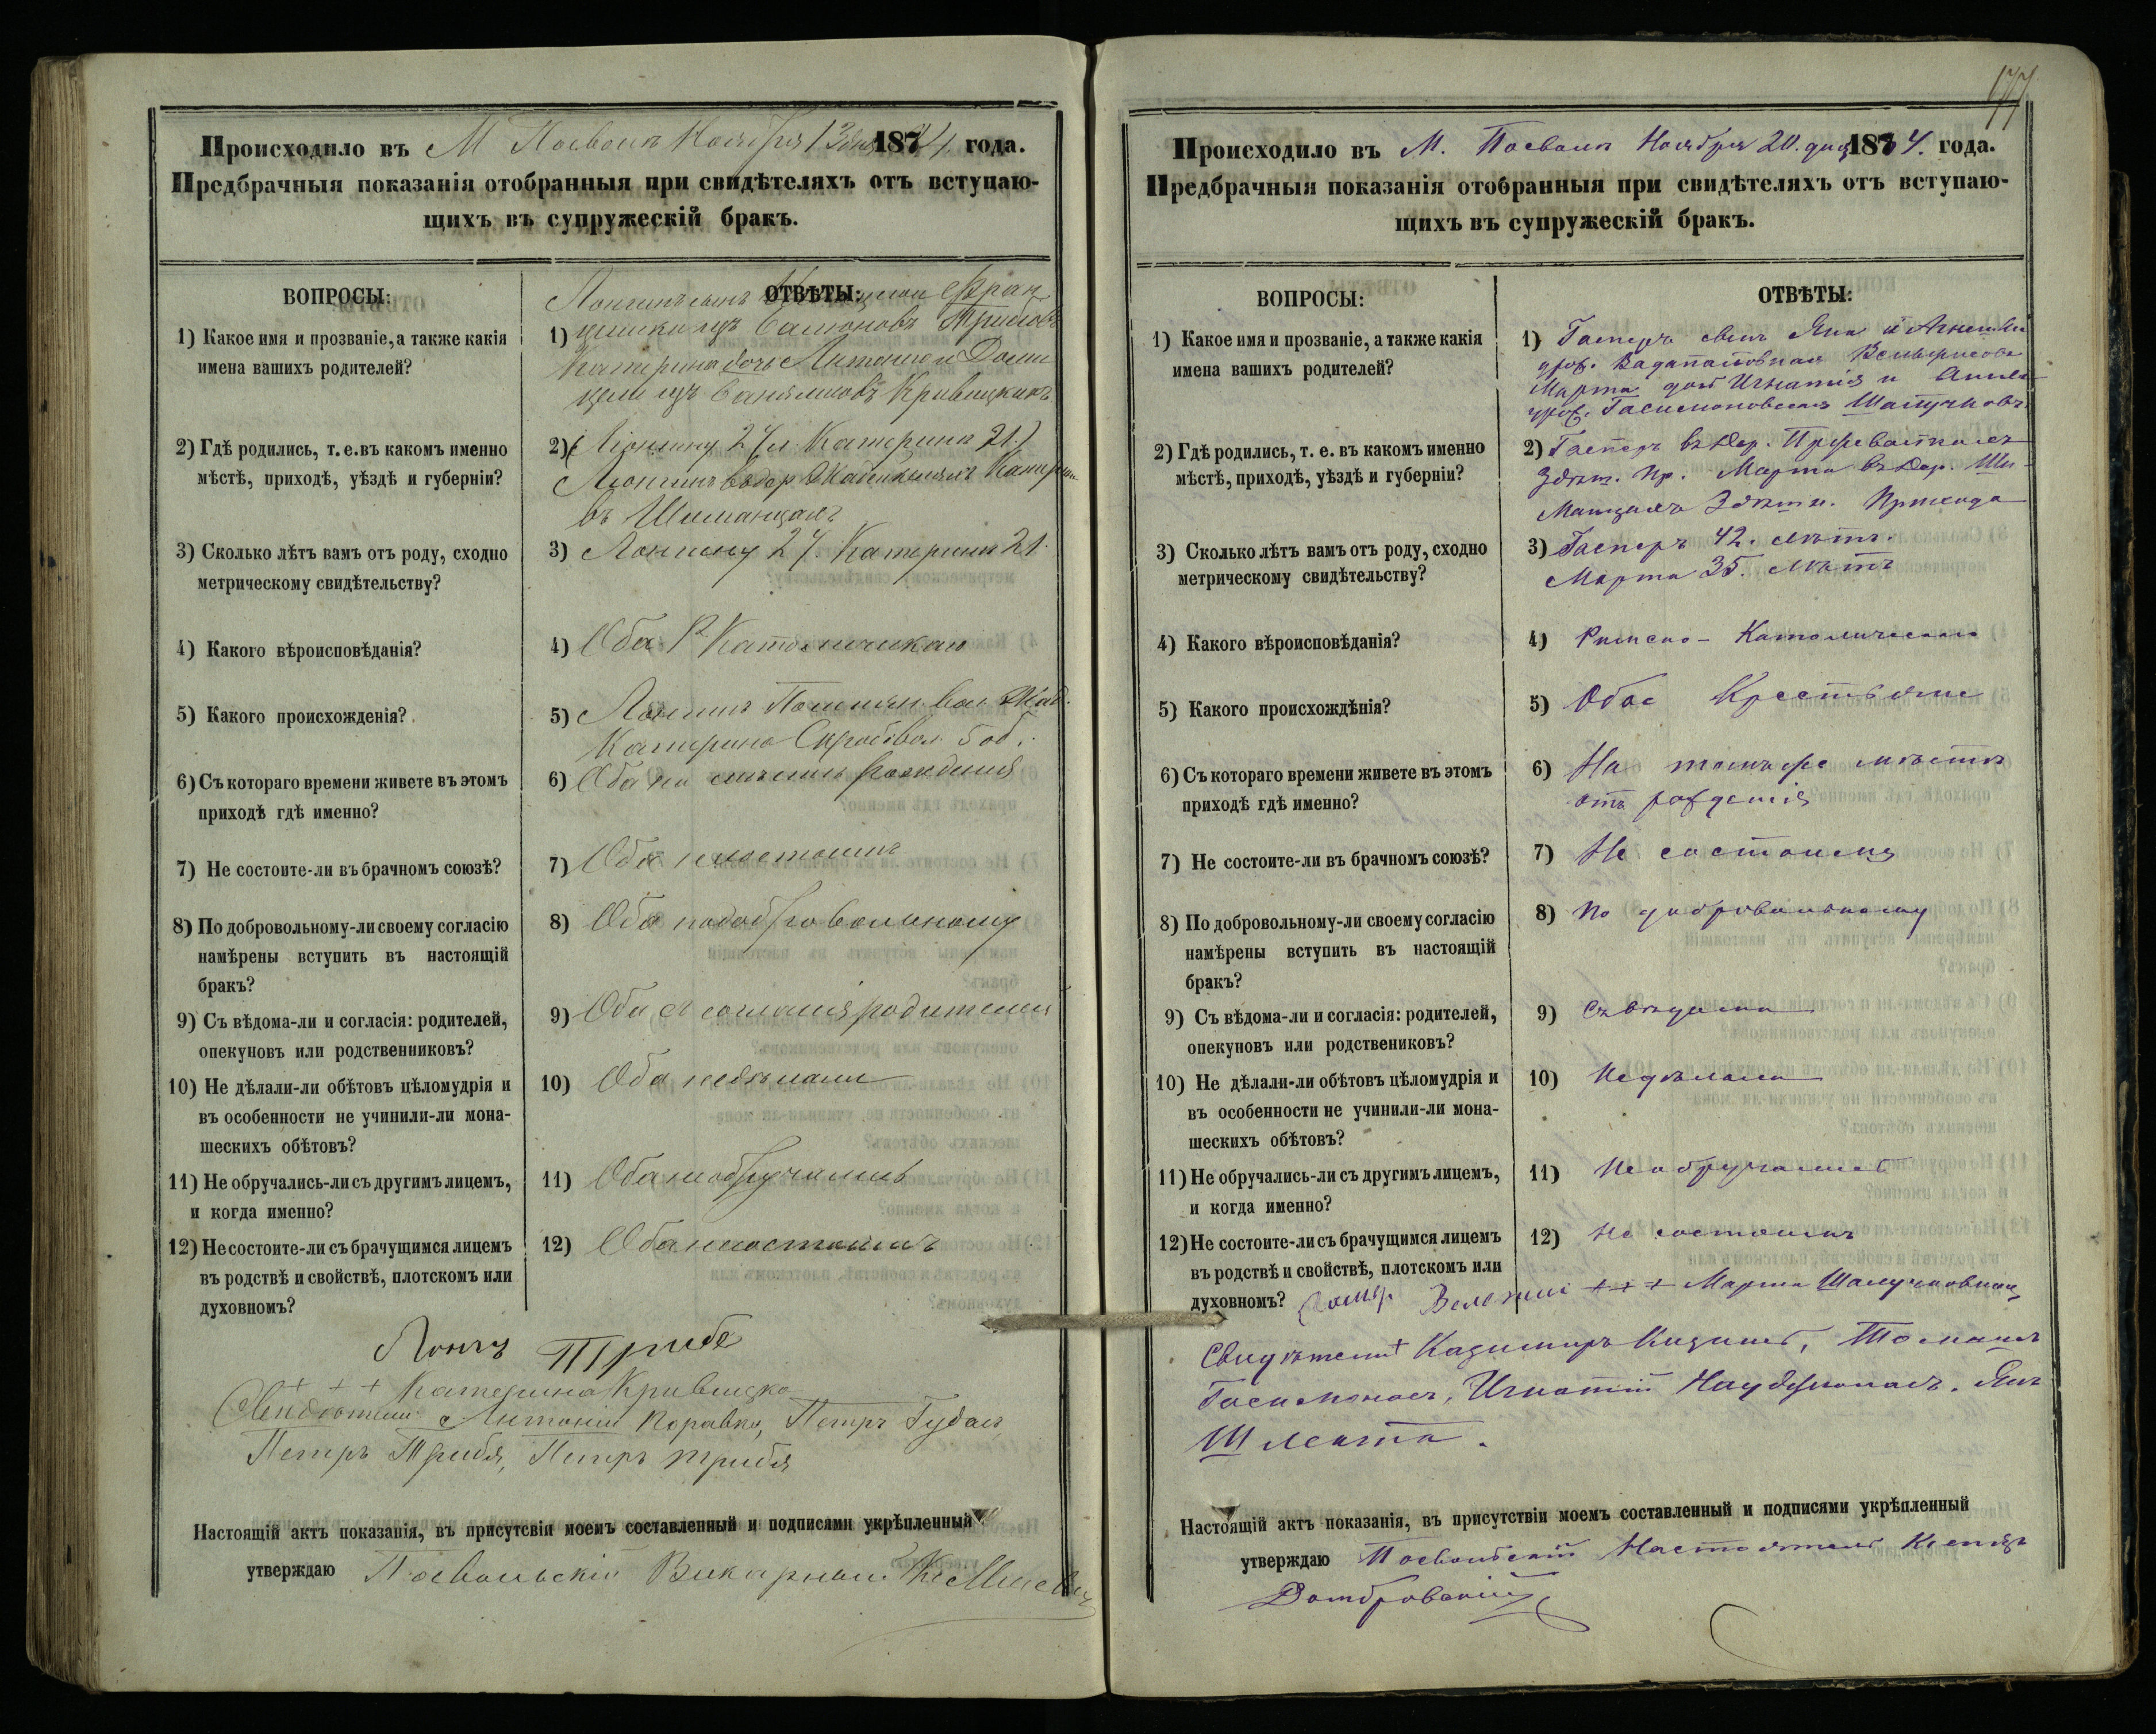 Происходило въ М Посволь Ноября 13 дня 1874 года.
Предбрачныя показанія отобранныя при свидѣтеляхъ отъ вступаю-
щихъ въ супружескій бракъ.
ВОПРОСЫ:
ОТВѢТЫ:
1) Какое имя и прозваніе, а также какія
имена вашихъ родителей?
1)
Катерина дочь Антонiя и
2) Гдѣ родились, т. е. въ какомъ именно
мѣстѣ, приходѣ, уѣздѣ и губерніи?
2) 27 л Катерина 21.)
въ
3) Сколько лѣтъ вамъ отъ роду, сходно
метрическому свидѣтельству?
3) Лонгину 27. Катерина 21.
4) Какого вѣроисповѣданія?
4) Оба Р Католическаго
5) Какого происхожденія?
5) Лонгинъ
Катерина
6) Съ котораго времени живете въ этомъ
приходѣ гдѣ именно?
6) Оба на рождения
7) Не состоите-ли въ брачномъ союзѣ?
7) Оба несостоимъ
8) По добровольному-ли своему согласію
намѣрены вступить въ настоящій
бракъ?
8) Оба подобровольному
9) Съ вѣдома-ли и согласія: родителей,
опекуновъ или родственниковъ?
9) Оба съ согласія родителей
10) Не дѣлали-ли обѣтовъ цѣломудрія и
въ особенности не учинили-ли мона-
шескихъ обѣтовъ?
10) Оба недѣлали
11) Не обручались-ли съ другимъ лицемъ,
и когда именно?
11) Оба необручались
12) Не состоите-ли съ брачущимся лицемъ
въ родствѣ и свойствѣ, плотскомъ или
духовномъ?
12) Оба несостоимъ
Триба
+ + + Катерина Кривицка
Свидѣтели Антоній Коравко, Петръ
Петръ Трибя, Петръ Трибя
Настоящій актъ показанія, въ присутсвіи моемъ составленный и подписями укрѣпленный
утверждаю Посвольскій Викарный
177
Происходило въ М. Посволь Ноября 20. дня 1874. года.
Предбрачныя показанія отобранныя при свидѣтеляхъ отъ вступаю-
щихъ въ супружескій бракъ.
ВОПРОСЫ:
ОТВѢТЫ:
1) Какое имя и прозваніе, а также какія
имена вашихъ родителей?
1) Гасперъ сынъ Яна и Агнешки
Марта дочь Игнатія и
2) Гдѣ родились, т. е. въ какомъ именно
мѣстѣ, приходѣ, уѣздѣ и губерніи?
2) Гасперъ въ дер.
Здѣш. пр. Марта въ дер. Ши-
манцахъ Здѣшн. прихода
3) Сколько лѣтъ вамъ отъ роду, сходно
метрическому свидѣтельству?
3) Гасперъ 42. лѣтъ.
Марта 35. лѣтъ
4) Какого вѣроисповѣданія?
4) Римско-Католическаго
5) Какого происхождѣнія?
5) Обое Крестьяне
6) Съ котораго времени живете въ этомъ
приходѣ гдѣ именно?
6) На томъже мѣстѣ
отъ рожденія
7) Не состоите-ли въ брачномъ союзѣ?
7) Не состоимъ
8) По добровольному-ли своему согласію
намѣрены вступить въ настоящій
бракъ?
8) По добровольному
9) Съ вѣдома-ли и согласія: родителей,
опекуновъ или родствениковъ?
9) Съ вѣдома
10) Не дѣлали-ли обѣтовъ цѣломудрія и
въ особенности не учинили-ли мона-
шескихъ обѣтовъ?
10) Недѣлали
11) Не обручались-ли съ другимъ лицемъ,
и когда именно?
11) Необручались
12) Не состоите-ли съ брачущимся лицемъ
въ родствѣ и свойствѣ, плотскомъ или
духовномъ?
12) Не состоимъ
+ + + Марта
Свидѣтели + Казимиръ Томашъ
Гасюнасъ, Игнатій Янъ
Шлекта.
Настоящій актъ показанія, въ присутствіи моемъ составленный и подписями укрѣпленный
утверждаю Посвольскій Настоятель Ксендзъ
Домбровскій